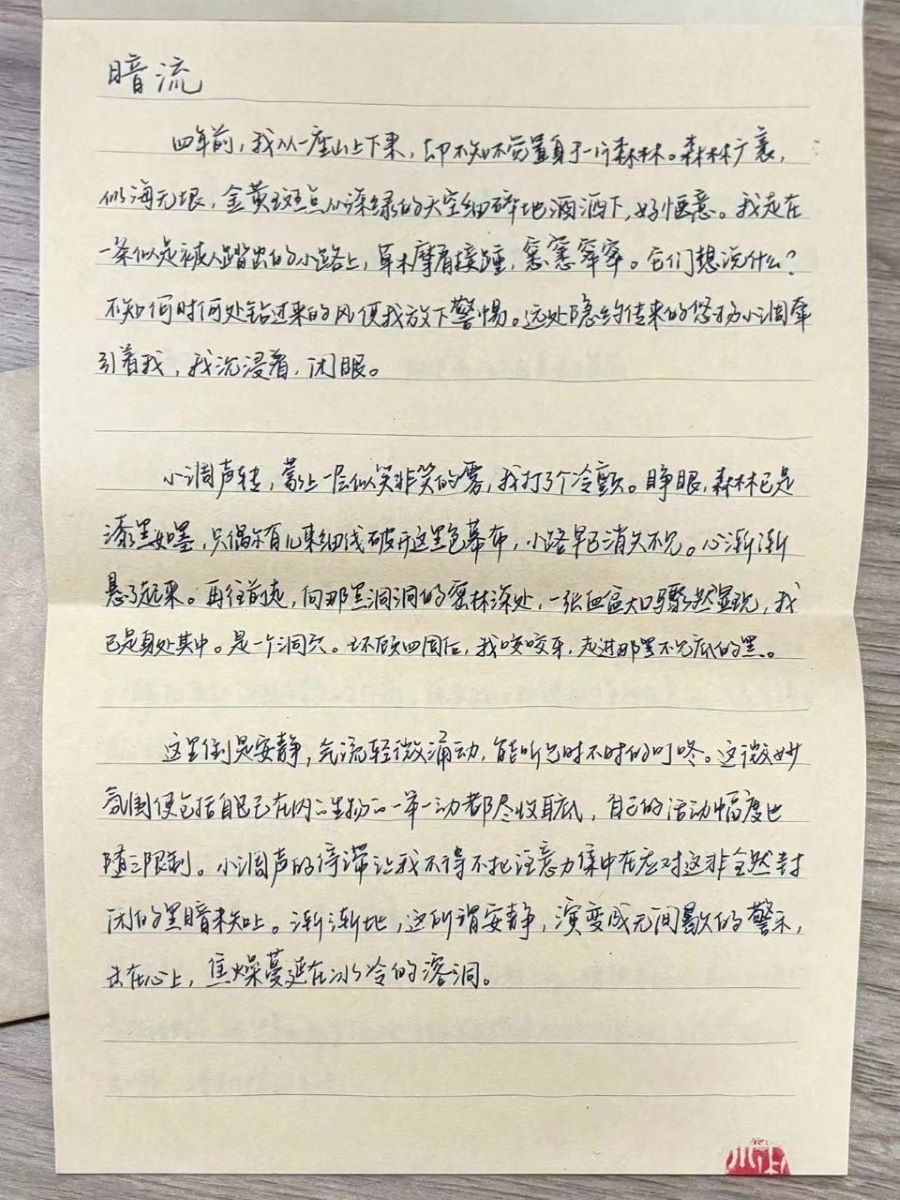 暗流
四年前，我从一座山上下来，却不知不觉置身于一片森林。森林广袤，
似海无垠，金黄斑点从深绿的天空细碎地洒洒下，好惬意。我走在
一条似是被人踏出的小路上，草木摩肩接踵，窸窸窣窣。它们想说什么？
不知何时何处钻过来的风使我放下警惕。远处隐约传来的悠扬小调牵
引着我，我沉浸着，闭眼。
小调声转，蒙上一层似笑非笑的雾，我打了个冷颤。睁眼，森林已是
漆黑如墨，只偶尔有几束细线破开这黑色幕布，小路早已消失不见。心渐渐
悬了起来。再往前走，向那黑洞洞的密林深处，一张血盆大口骤然显现，我
已是身处其中。是一个洞穴。环顾四周后，我咬咬牙，走进那黑不见底的黑。
这里倒是安静，气流轻微涌动，能听见时不时的叮咚。这微妙
氛围使包括自己在内的生物的一举一动都尽收耳底，自己的活动幅度也
随之限制。小调声的停滞让我不得不把注意力集中在应对这非全然封
闭的黑暗未知上。渐渐地，这所谓安静，演变成无间歇的警示，
击在心上，焦燥蔓延在冰冷的溶洞。